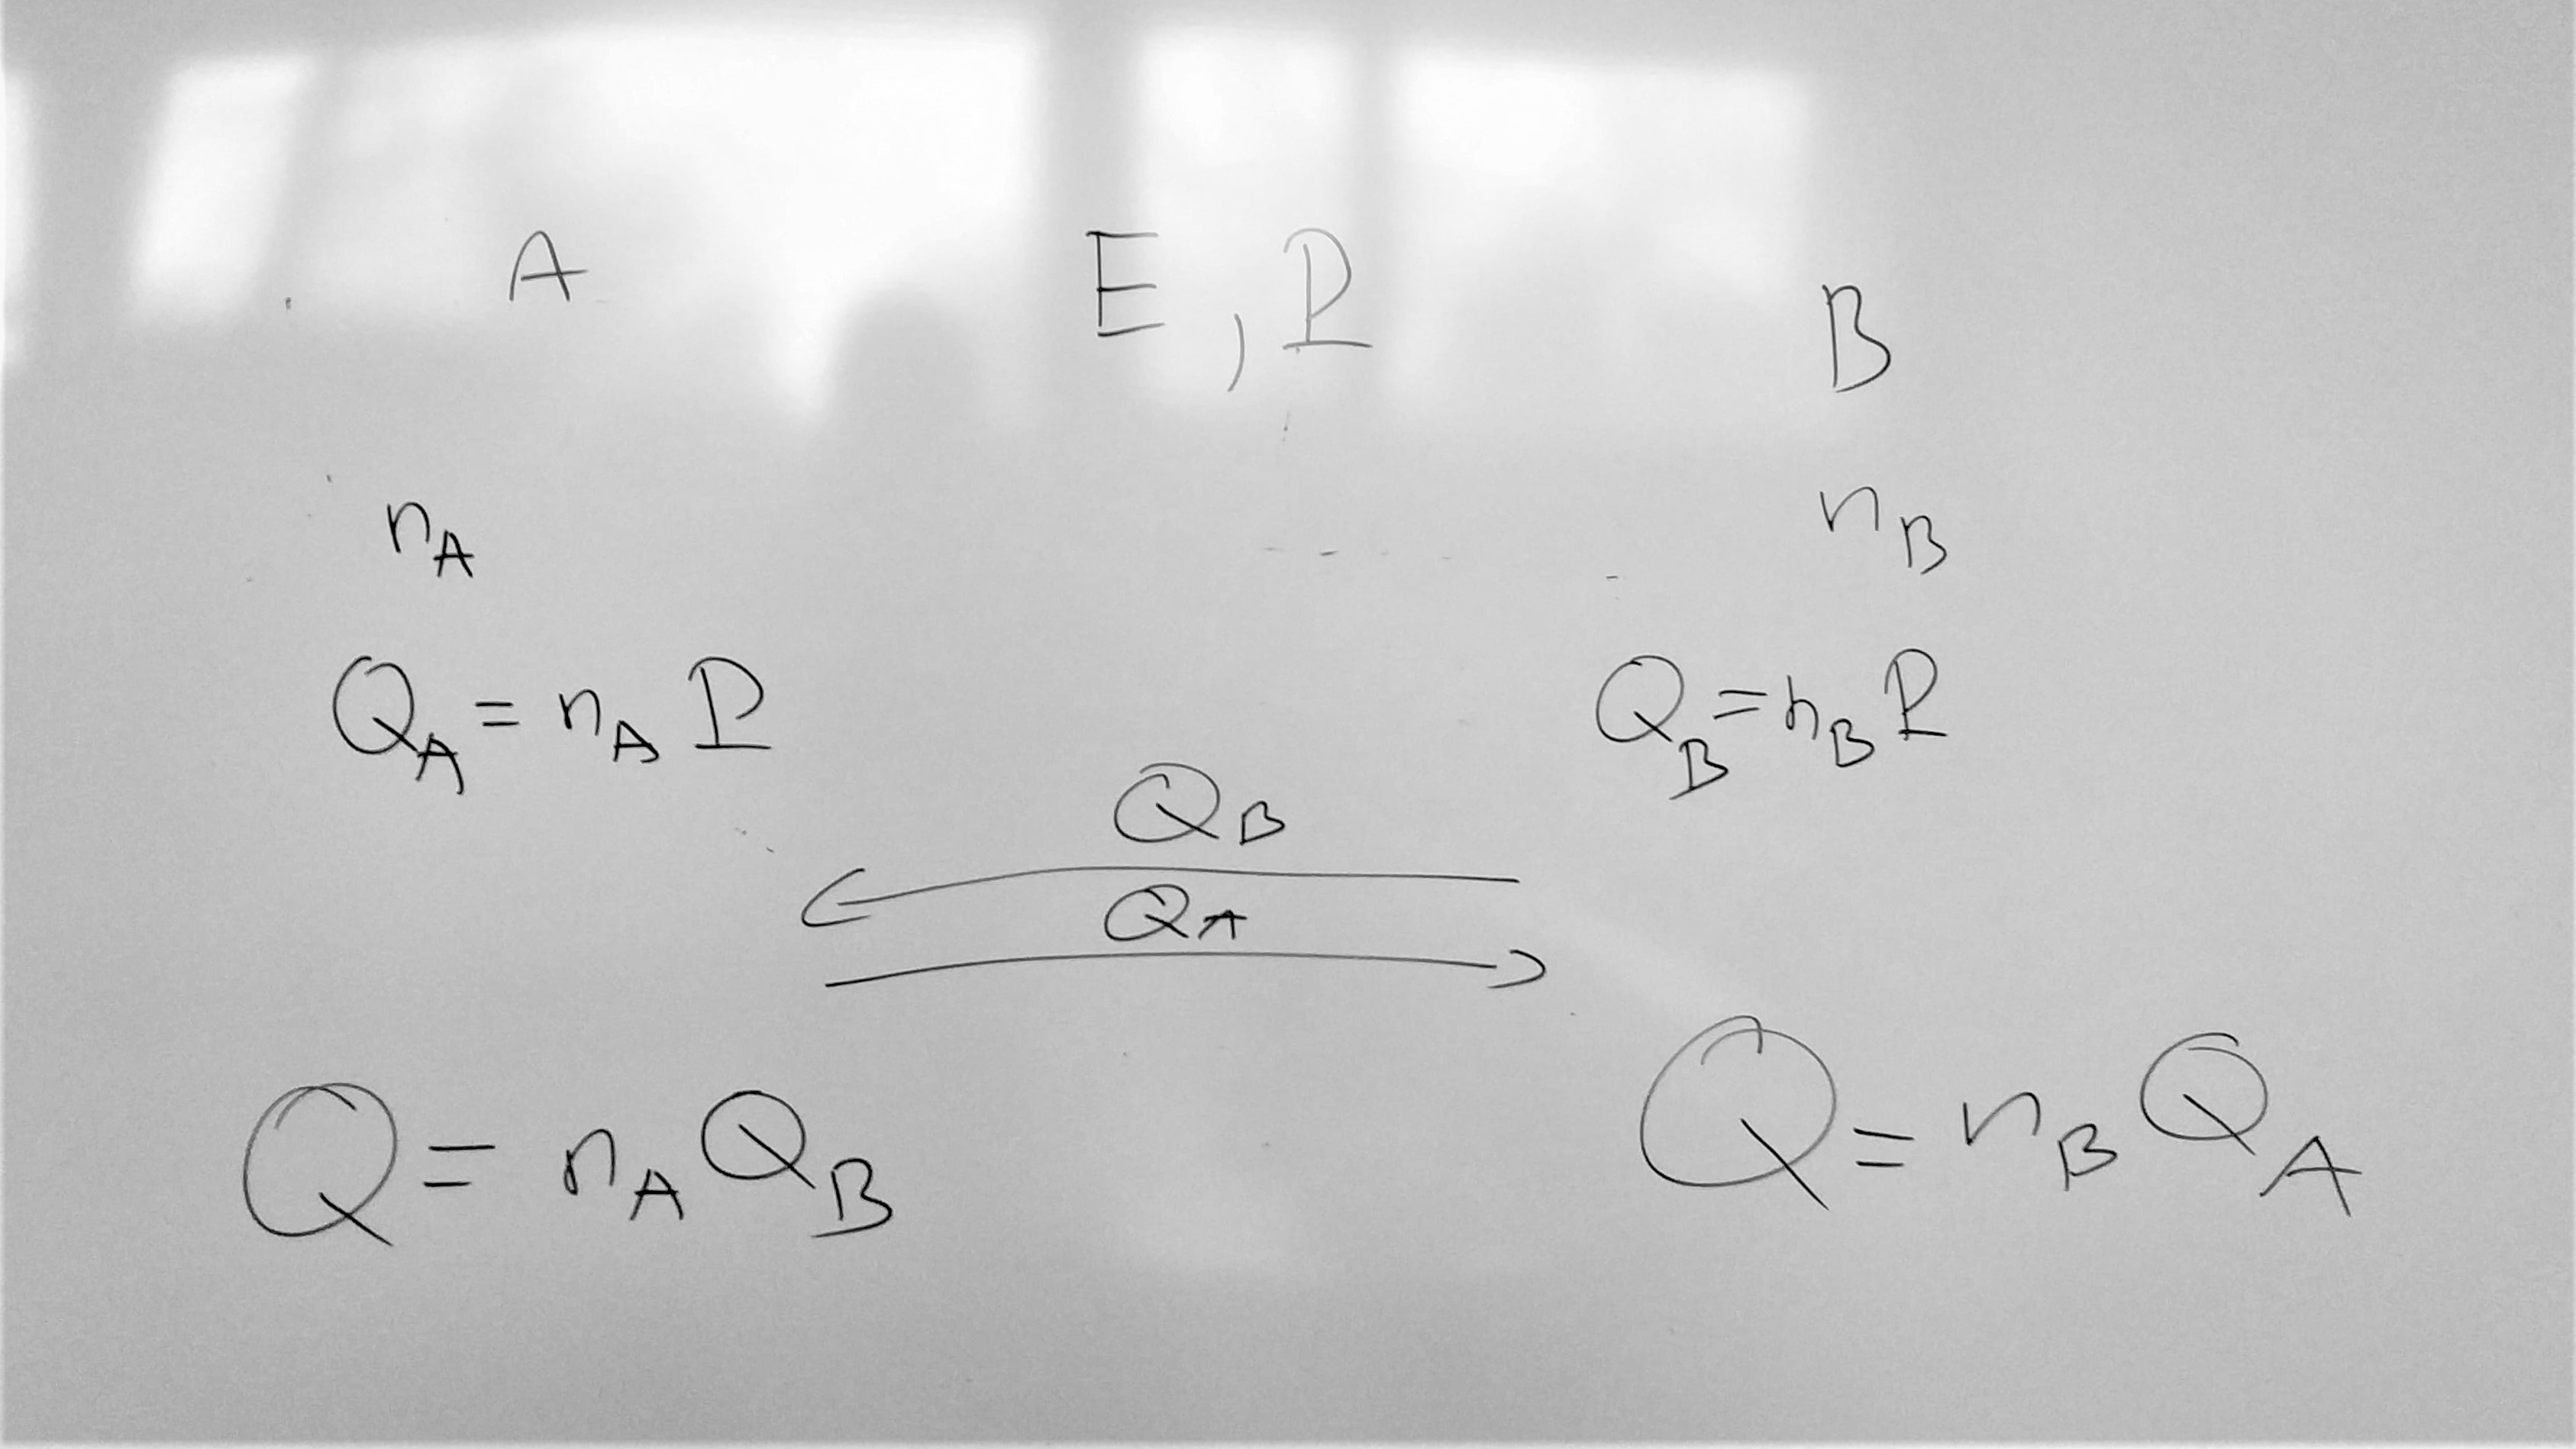 A E, P B
n_A n_B
Q_A = n_A P Q_B = n_B P
Q_B
Q_A
Q = n_A Q_B Q = n_B Q_A